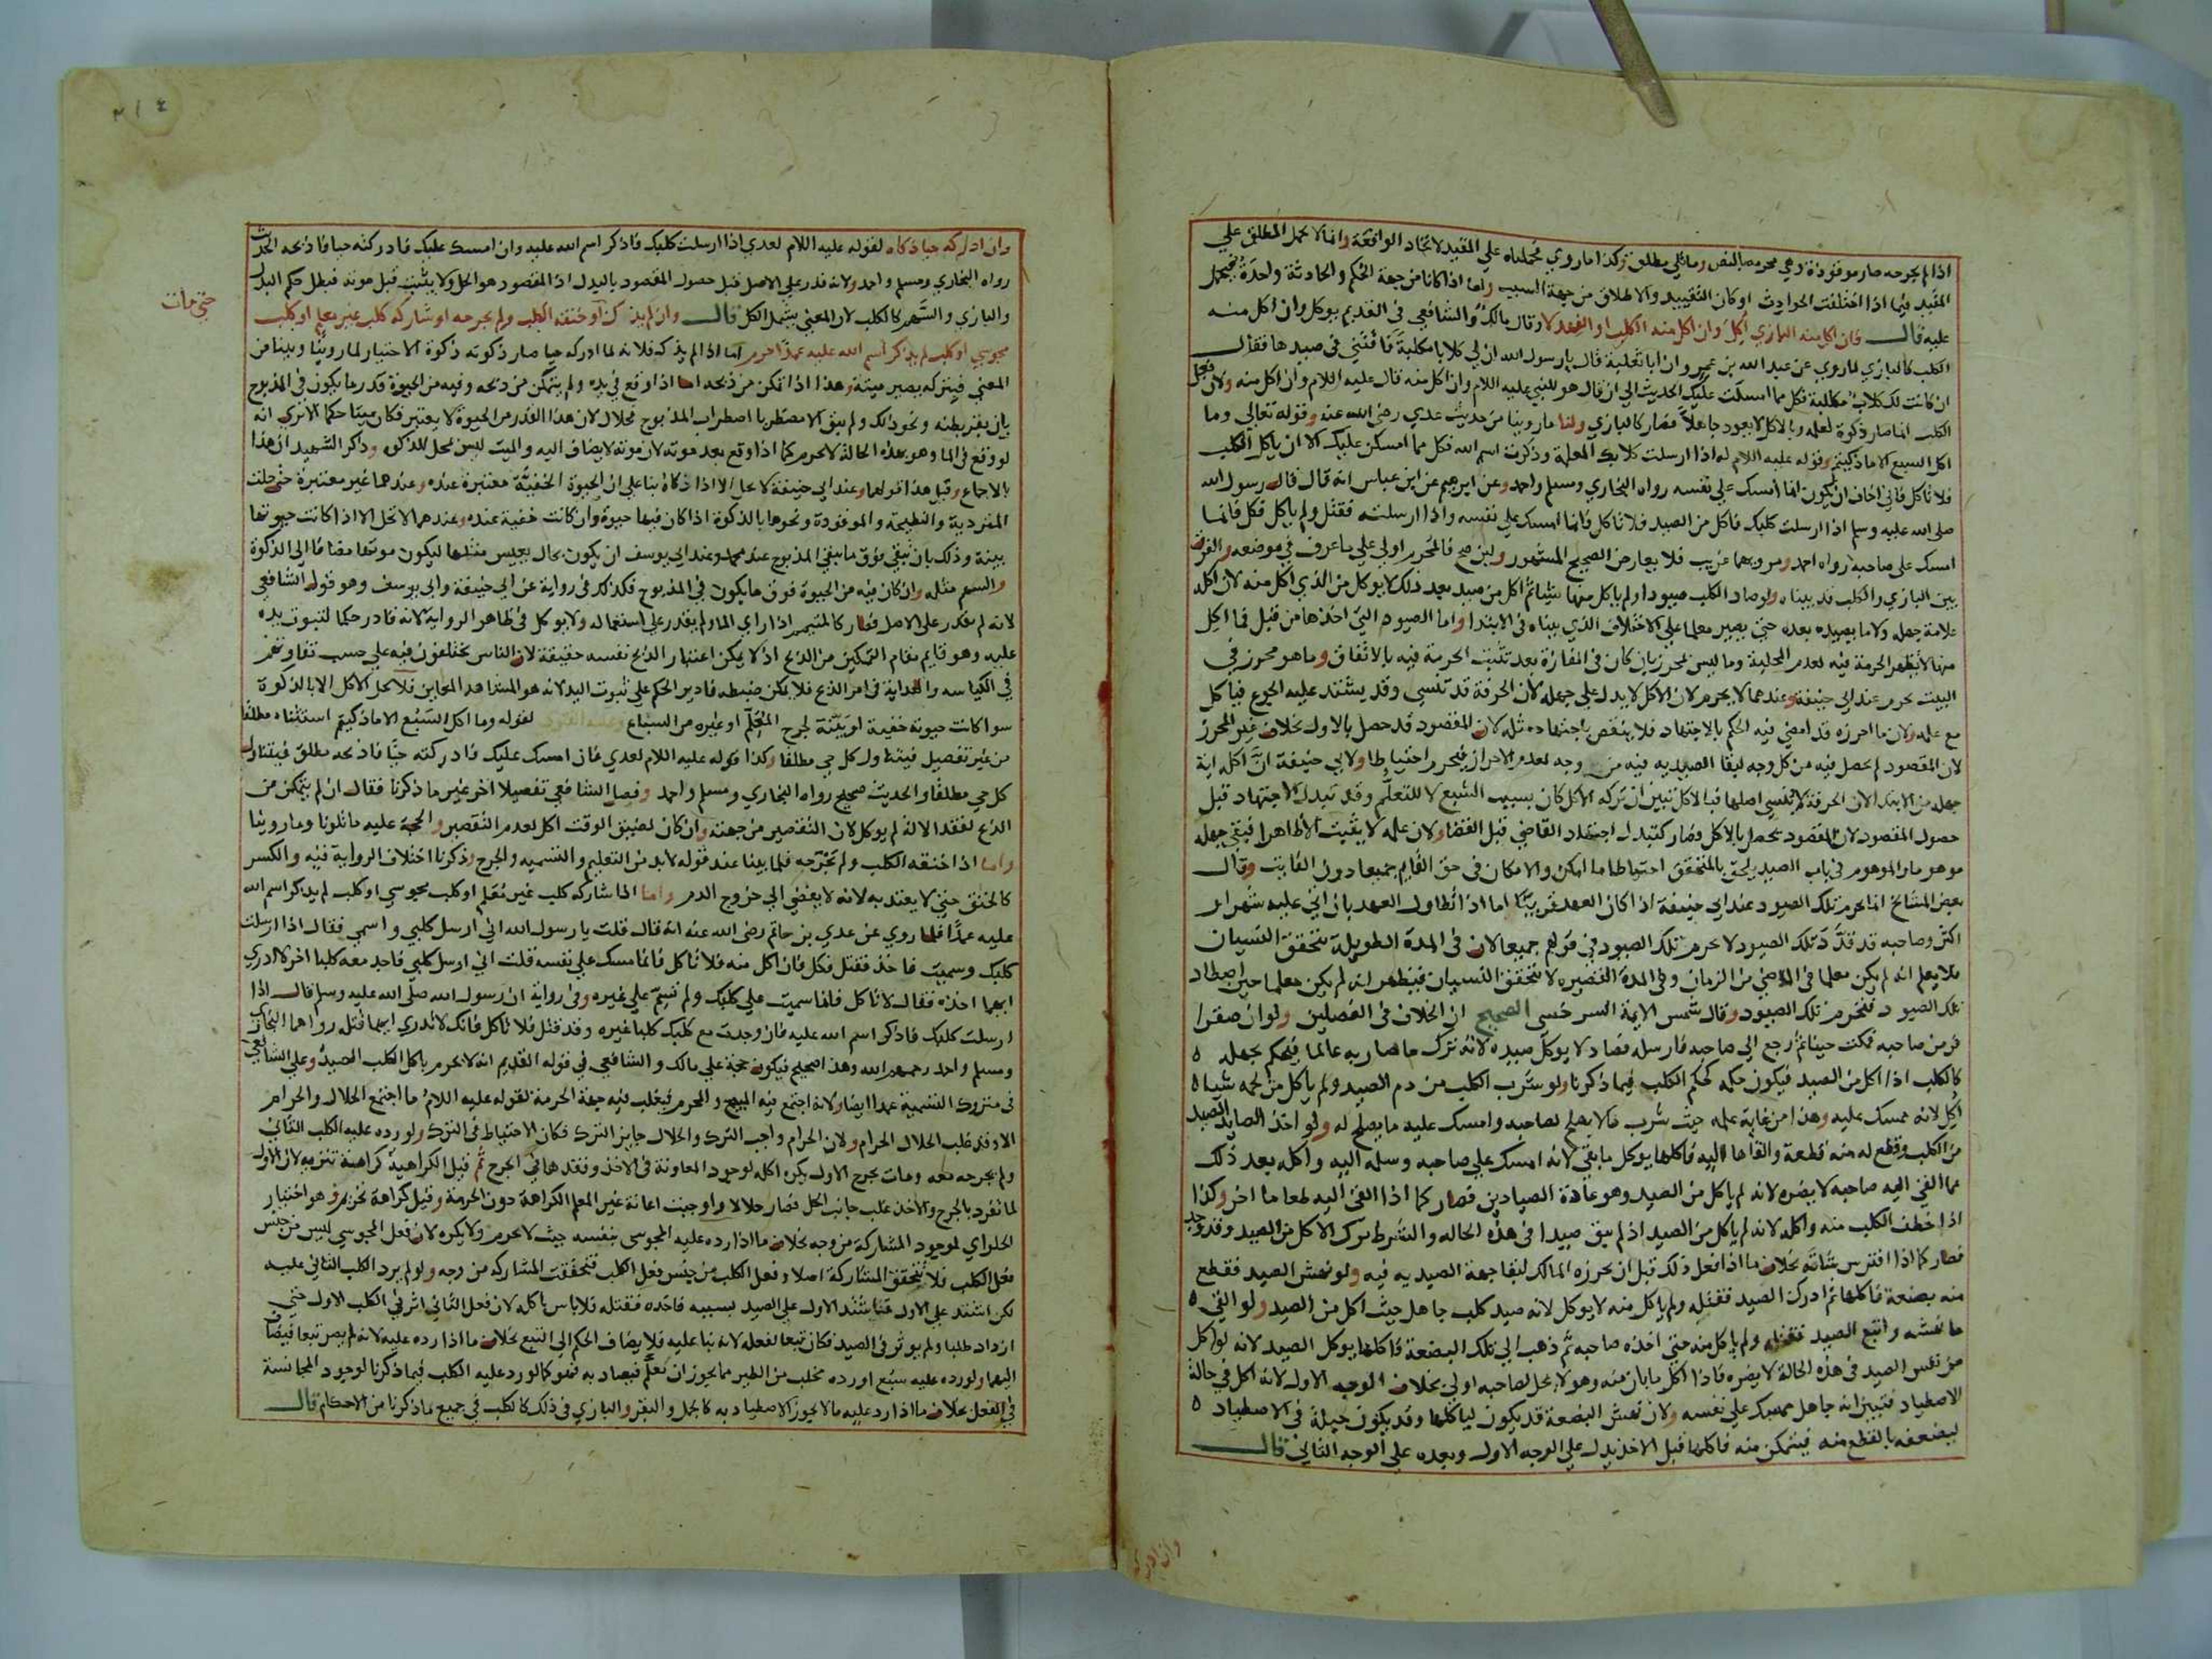 اذا لم يجرحه صار موقوذة وهي محرمة بالنص وما تلي مطلق وكذا ما روي فحملناه علي المقيد لاتحاد الواقعة وانما لا يحمل المطلق علي
المقيد فيما اذا اختلفت الحوادث او كان التقييد والاطلاق من جهة السبب واما اذا كانا من جهة الحكم والحادثة واحدة فيحمل
عليه قال فان اكل منه البازي اكل وان اكل منه الكلب او الفهد لا وقال مالك والشافعي في القديم يوكل وان اكل منه
الكلب كالبازي لما روي عن عبد الله بن عمرو ان ابا ثعلبة قال يا رسول الله ان لي كلابا مكلبة فافتني في صيدها فقال
ان كانت لك كلاب مكلبة فكل مما امسكت عليك الحديث الي ان قال هو للنبي عليه اللام وان اكل منه قال عليه اللام وان اكل منه ولان فعل
الكلب انما صار ذكوة لعلمه وبالاكل لا يعود جاهلا فصار كالبازي ولنا ما روينا من حديث عدي رضي الله عنه وقوله تعالي وما
اكل السبع الا ما ذكيتم وقوله عليه اللام له اذا ارسلت كلابك المعلمة وذكرت اسم الله فكل مما امسكن عليك الا ان ياكل الكلب
فلا تاكل فاني اخاف ان يكون انما امسك علي نفسه رواه البخاري ومسلم واحمد وعن ابرهيم عن ابن عباس انه قال قال رسول الله
صلي الله عليه وسلم اذا ارسلت كلبك فاكل من الصيد فلا تاكل فانما امسك علي نفسه واذا ارسلته فقتل ولم ياكل فكل فانما
امسك علي صاحبه رواه احمد ومرويهما غريب فلا يعارض الصحيح المشهور ولين صح فالمحرم اولي علي ما عرف في موضعه والفرق
بين البازي والكلب قد بيناه ولو صاد الكلب صيودا ولم ياكل منها شيئا ثم اكل من صيد بعد ذلك لا يوكل من الذي اكل منه لان اكله
علامة جهله ولا ما يصيده بعده حتي يصير معلما علي الاختلاف الذي بيناه في الابتدا واما الصيود التي اخذها من قبل فما اكل
منها لا يظهر الحرمة فيه لعدم المحلية وما ليس بمحرز بان كان في المفازة بعد تثبت الحرمة فيه بالاتفاق وما هو محرز في
البيت يحرم عند ابي حنيفة وعندهما لا يحرم لان الاكل لا يدل علي جهله لان الحرفة قد تنسي وقد يشتد عليه الجوع فياكل
مع علمه ولان ما احرزه قد امضي فيه الحكم بالاجتهاد فلا ينقض باجتهاد مثله لان المقصود قد حصل بالاول بخلاف غير المحرز
لان المقصود لم يحصل فيه من كل وجه لبقا الصيديه فيه من وجه لعدم الاحراز فيحرم احتياطا ولابي حنيفة ان اكله اية
جهله من الابتدا لان الحرفة لا ينسي اصلها فبالاكل تبين ان تركه الاكل كان بسبب الشبع لا للتعلم وقد تبدل الاجتهاد قبل
حصول المقصود لان المقصود يحصل بالاكل وصار كتبدل اجتهاد القاضي قبل القضا ولان علمه لا يثبت الا ظاهرا فبقي جهله
موهوما والموهوم في باب الصيد يلحق بالمتحقق احتياطا ما امكن والامكان في حق القايم جميعا دون الفايت وقال
بعض المشايخ انما يحرم تلك الصيود عند ابي حنيفة اذا كان العهد قريبا اما اذا تطاول العهد بان اتي عليه شهر او
اكثر وصاحبه قد قدد تلك الصيود لا يحرم تلك الصيود في قولهم جميعا لان في المدة الطويلة يتحقق النسيان
فلا يعلم انه لم يكن معلما في الماضي من الزمان وفي المدة القصيره لا يتحقق النسيان فيظهر انه لم يكن معلما حين اصطاد
تلك الصيود فتحرم تلك الصيود وقال شمس الايمة السرخسي الصحيح ان الخلاف في الفصلين ولو ان صقرا
فر من صاحبه فمكث حينا ثم رجع الي صاحبه فارسله فصاد لا يوكل صيده لانه ترك ما صار به عالما فيحكم بجهله ه
كالكلب اذا اكل من الصيد فيكون حكمه كحكم الكلب فيما ذكرنا ولو شرب الكلب من دم الصيد ولم ياكل من لحمه شيا ه
اكل لانه ممسك عليه وهذا من غاية علمه حيث شرب ما لا يصلح لصاحبه وامسك عليه ما يصلح له ولو اخذ الصايد الصيد
من الكلب وقطع له منه قطعة والقاها اليه فاكلها يوكل ما بقي لانه امسك علي صاحبه وسلمه اليه واكله بعد ذلك
مما القي اليه صاحبه لا يضره لانه لم ياكل من الصيد وهو عادة الصيادين فصار كما اذا القي اليه طعاما اخر وكذا
اذا خطف الكلب منه واكله لانه لم ياكل من الصيد اذ لم يبق صيدا في هذه الحاله والشرط ترك الاكل من الصيد وقد وجد
فصار كما اذا افترس شاته بخلاف ما اذا فعل ذلك قبل ان يحرزه المالك لبقا جهة الصيديه فيه ولو نهش الصيد فقطع
منه بضعة فاكلها ثم ادرك الصيد فقتله ولم ياكل منه لا يوكل لانه صيد كلب جاهل حيث اكل من الصيد ولو القي ه
ما نهشه واتبع الصيد فقتله ولم ياكل منه حتي اخذه صاحبه ثم ذهب الي تلك البضعة فاكلها يوكل الصيد لانه لو اكل
من نفس الصيد في هذه الحالة لا يضره فاذا اكل ما بان منه وهو لا يحل لصاحبه اولي بخلاف الوجه الاول لانه اكل في حالة
الاصطياد فتبين انه جاهل ممسك علي نفسه ولان نهش البضعة قد يكون لياكلها وقد يكون حيلة في الاصطياد ه
ليضعفه بالقطع منه فيتمكن منه فاكلها قبل الاخذ يدل علي الوجه الاول وبعده علي الوجه الثاني قال
وان ادركه
٢١٤
وان ادركه حيا ذكاه لقوله عليه اللام لعدي اذا ارسلت كلبك فاذكر اسم الله عليه وان امسك عليك فادركته حيا فاذبحه الحديث
رواه البخاري ومسلم واحمد ولانه قدر علي الاصل قبل حصول المقصود بالبدل اذ المقصود هو الحل ولا يثبت قبل موته فبطل حكم البدل
والبازي والسهم كالكلب لان المعني يشمل الكل قال وان لم يذكه او خنقه الكلب ولم يجرحه او شاركه كلب غير معلم او كلب
حتي مات
مجوسي او كلب لم يذكر اسم الله عليه عمدا حرم اما اذا لم يذكه فلانه لما ادركه حيا صار ذكوته ذكوة الاختيار لما روينا وبينا من
المعني فبتركه يصير ميتة وهذا اذا تمكن من ذبحه اما اذا وقع في يده ولم يتمكن من ذبحه وفيه من الحيوة قدر ما يكون في المذبوح
بان بقر بطنه ونحو ذلك ولم يبق الا مضطربا اضطراب المذبوح فحلال لان هذا القدر من الحيوة لا يعتبر فكان ميتا حكما الا تري انه
لو وقع في الما وهو بهذه الحالة لا يحرم كما اذا وقع بعد موته لان موته لا يضاف اليه والميت ليس بمحل للذكوه وذكر الشهيد ان هذا
بالاجماع وقيل هذا قولهما وعند ابي حنيفة لا يحل الا اذا ذكاه بنا علي ان الحيوة الخفية معتبرة عنده وعندهما غير معتبرة حتي حلت
المتردية والنطيحة والموقوذة ونحوها بالذكوة اذا كان فيها حيوة وان كانت خفية عنده وعندهما لا تحل الا اذا كانت حيوتها
بينة وذلك بان تبقي فوق ما يبقي المذبوح عند محمد وعند ابي يوسف ان يكون بحال يعيش مثلها ليكون موتها مضافا الي الذكوة
والسهم مثله وان كان فيه من الحيوة فوق ما يكون في المذبوح فكذلك في رواية عن ابي حنيفة وابي يوسف وهو قول الشافعي
لانه لم يقدر علي الاصل فصار كالمتيمم اذا راي الما ولم يقدر علي استعماله ولا يوكل في ظاهر الرواية لانه قادر حكما لثبوت يده
عليه وهو قايم مقام التمكن من الذبح اذ لا يمكن اعتبار الذبح نفسه حقيقة لان الناس يختلفون فيه علي حسب تفاوتهم
في الكياسه والهداية في امر الذبح فلا يمكن ضبطه فادير الحكم علي ثبوت اليد لانه هو المشاهد المعاين فلا يحل الاكل الا بالذكوة
سوا كانت حيوته خفية او بينة لجرح المعلم او غيره من السباع وعليه الفتوي لقوله وما اكل السبع الا ما ذكيتم استثناه مطلقا
من غير تفصيل فيتناول كل حي مطلقا وكذا قوله عليه اللام لعدي فان امسك عليك فادركته حيا فاذبحه مطلق فيتناول
كل حي مطلقا والحديث صحيح رواه البخاري ومسلم واحمد وفصل الشافعي تفصيلا اخر غير ما ذكرنا فقال ان لم يتمكن من
الذبح لفقد الالة لم يوكل لان التقصير من جهته وان كان لضيق الوقت اكل لعدم التقصير والحجة عليه ما تلونا وما روينا
واما اذا خنقه الكلب ولم يجرحه فلما بينا عند قوله لا بد من التعليم والتسميه والجرح وذكرنا اختلاف الرواية فيه والكسر
كالخنق حتي لا يعتد به لانه لا يفضي الي خروج الدم واما اذا شاركه كلب غير معلم او كلب مجوسي او كلب لم يذكر اسم الله
عليه عمدا فلما روي عن عدي بن حاتم رضي الله عنه انه قال قلت يا رسول الله اني ارسل كلبي واسمي فقال اذا ارسلت
كلبك وسميت فاخذ فقتل فكل فان اكل منه فلا تاكل فانما امسك علي نفسه قلت اني ارسل كلبي فاجد معه كلبا اخر لا ادري
ايهما اخذه فقال لا تاكل فانما سميت علي كلبك ولم تسم علي غيره وفي رواية ان رسول الله صلي الله عليه وسلم قال اذا
ارسلت كلبك فاذكر اسم الله عليه فان وجدت مع كلبك كلبا غيره وقد قتل فلا تاكل فانك لا تدري ايهما قتله رواهما البخاري
ومسلم واحمد رحمهم الله وهذا صحيح فيكون حجة علي مالك والشافعي في قوله القديم انه لا يحرم باكل الكلب الصيد وعلي الشافعي
في متروك التسمية عمدا ايضا ولانه اجتمع فيه المبيح والمحرم فيغلب فيه جهة الحرمة لقوله عليه اللام ما اجتمع الحلال والحرام
الا وقد غلب الحلال الحرام ولان الحرام واجب الترك والحلال جايز الترك فكان الاحتياط في الترك ولو رده عليه الكلب الثاني
ولم يجرحه معه ومات بجرح الاول يكره اكله لوجود المعاونة في الاخذ وفقدها في الجرح ثم قيل الكراهية كراهية تنزيه لان الاول
لما تفرد بالجرح والاخذ غلب جانب الحل فصار حلالا واوجبت اعانة غير المعلم الكراهة دون الحرمة وقيل كراهة تحريم وهو اختيار
الحلواي لوجود المشاركة من وجه بخلاف ما اذا رده عليه المجوسي بنفسه حيث لا يحرم ولا يكره لان فعل المجوسي ليس من جنس
فعل الكلب فلا تتحقق المشاركة اصلا وفعل الكلب من جنس فعل الكلب فتحققت المشاركه من وجه ولو لم يرد الكلب الثاني عليه
لكن اشتد علي الاول فاشتد الاول علي الصيد بسببه فاخذه فقتله فلا باس باكله لان فعل الثاني اثر في الكلب الاول حتي
ازداد طلبا ولم يوثر في الصيد فكان تبعا لفعله لانه بنا عليه فلا يضاف الحكم الي التبع بخلاف ما اذا رده عليه لانه لم يصر تبعا فيضاف
اليهما ولو رده عليه سبع او رده مخلب من الطير مما يجوز ان يعلم فيصاد به فهو كما لو رد عليه الكلب فيما ذكرنا لوجود المجانسة
في الفعل بخلاف ما اذا رد عليه ما لا يجوز الاصطياد به كالجمل والبقر والبازي في ذلك كالكلب في جميع ما ذكرنا من الاحكام قال